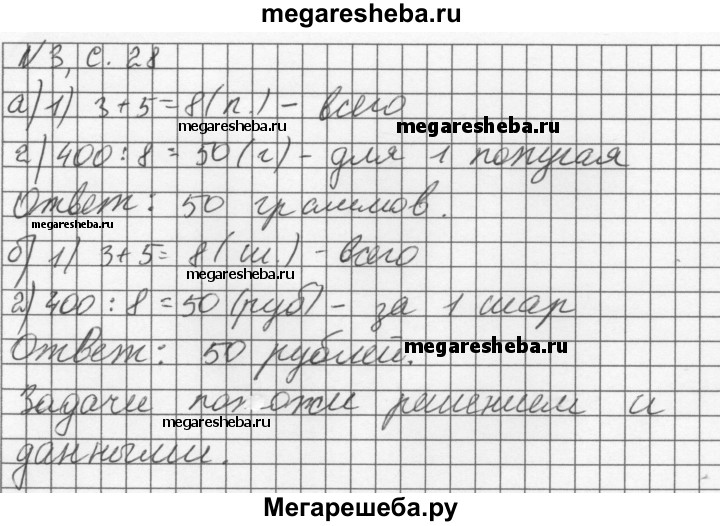 megaresheba.ru
N 3, с. 28
а) 1) 3 + 5 = 8 (п.) - всего
megaresheba.ru
megaresheba.ru
2) 400 : 8 = 50 (г) - для 1 попугая
Ответ: 50 граммов.
megaresheba.ru
б) 1) 3 + 5 = 8 (ш.) - всего
megaresheba.ru
2) 400 : 8 = 50 (руб) - за 1 шар
Ответ: 50 рублей.
megaresheba.ru
Задачи похожи решением и
megaresheba.ru
данными.
Мегарешеба.ру